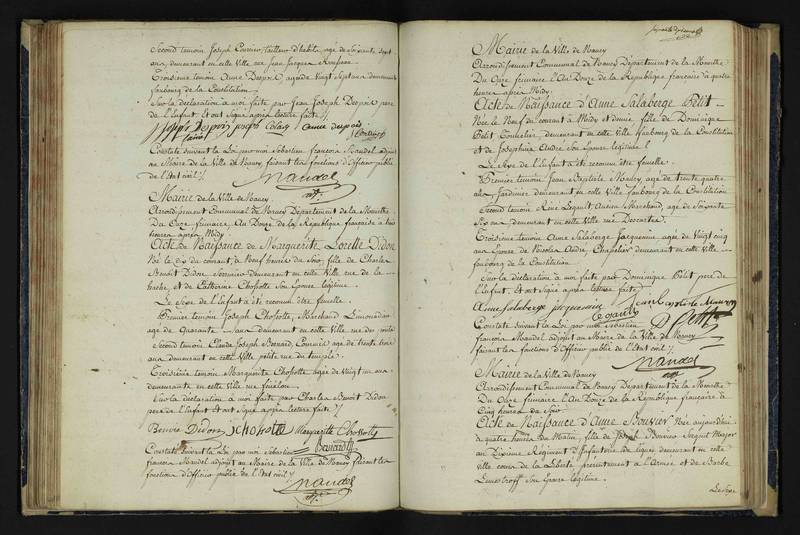 Second temoin Joseph Cournier, tailleur d'habits, agé de soixante sept
ans, demeurant en cette Ville rue Jean Jacques Rousseau
Troisieme temoin Anne Despré agée de Vingt Sept ans demeurant
faubourg de la Constitution
Sur la déclaration a moi faite par Jean Joseph Despré pere
de l'Enfant Et ont Signé après lecture faite /.
joseph Colas anne despres
Constaté suivant la Loi par moi Sébastien françois Mandel adjoint
au Maire de la Ville de Nancy faisant les fonctions d'Officier public
de l'Etat civil /.
Mandel
adt.
Mairie de la Ville de Nancy
Arrondissement Communal de Nancy Département de la Meurthe
Du Onze frimaire An Douze de la République française à
heures après Midy
Acte de Naissance de Marguerite Lorette Didon
Né le dix du courant à Neuf heures du Soir, fille de Charles
Benoit Didon demeurant en cette Ville rue de la
hache et de Catherine Chofotte Son Epouse légitime.
Le Sexe de l'Enfant à été reconnu être femelle.
Premier temoin Joseph Chofotte, Marchand Limonadier
agé de Quarante ans demeurant en cette Ville rue des
Second temoin Claude Joseph Bernard Cournier agé de trente
ans demeurant en cette Ville petite rue du temple.
Troisième temoin Marguerite Chofotte agée de Vingt un ans
demeurante en cette Ville rue fenélon.
Sur la déclaration à moi faite par Charles Benoit Didon
pere de l'Enfant et ont Signé après lecture faite /.
Benoit Didon J Chofotte Marguerite Chofotte
Bernard
Constaté suivant la Loi par moi Sébastien
françois Mandel adjoint au Maire de la Ville de Nancy faisant les
fonctions d'Officier public de l'Etat civil /.
Mandel
adt.
Mairie de la Ville de Nancy
Arrondissement Communal de Nancy Département de la Meurthe
Du Onze frimaire l'An Douze de la République française à quatre
heures après Midy.
Acte de Naissance d'Anne Salaberge Petit
Née le Neuf du courant à Midy et demie, fille de Dominique
Petit Tonnelier, demeurant en cette Ville faubourg de la Constitution
et de Josephine Aubri Son Epouse légitime.
Le Sexe de l'Enfant à été reconnu être femelle.
Premier temoin Jean Baptiste Maury, agé de trente quatre
ans, Jardinier demeurant en cette Ville faubourg de la Constitution
Second temoin René Ancien Marchand, agé de Soixante
Six ans demeurant en cette Ville rue Descartes.
Troisieme temoin Anne Salaberge Jacquemin agée de Vingt cinq
ans Epouse de Nicolas Aubri, Chapelier demeurant en cette Ville
faubourg de la Constitution
Sur la déclaration à moi faite par Dominique Petit pere de
l'Enfant, Et ont Signé après lecture faite /.
Anne Salaberge jacquemin
D Petit
Constaté suivant la Loi par moi Sébastien
françois Mandel adjoint au Maire de la Ville de Nancy
faisant les fonctions d'Officier public de l'Etat civil /.
Mandel
adt.
Mairie de la Ville de Nancy
Arrondissement Communal de Nancy Département de la Meurthe
Du Onze frimaire l'An Douze de la République française à
Cinq heures du Soir
Acte de Naissance d'Anne Bouvier Née aujourd'hui
à quatre heures du Matin, fille de Joseph Bouvier Sergent Major
au Dixieme Régiment d'Infanterie de Ligne, demeurant en cette
Ville cours de la Liberté présentement à l'Armée et de Barbe
Son Epouse légitime.
Le Sexe